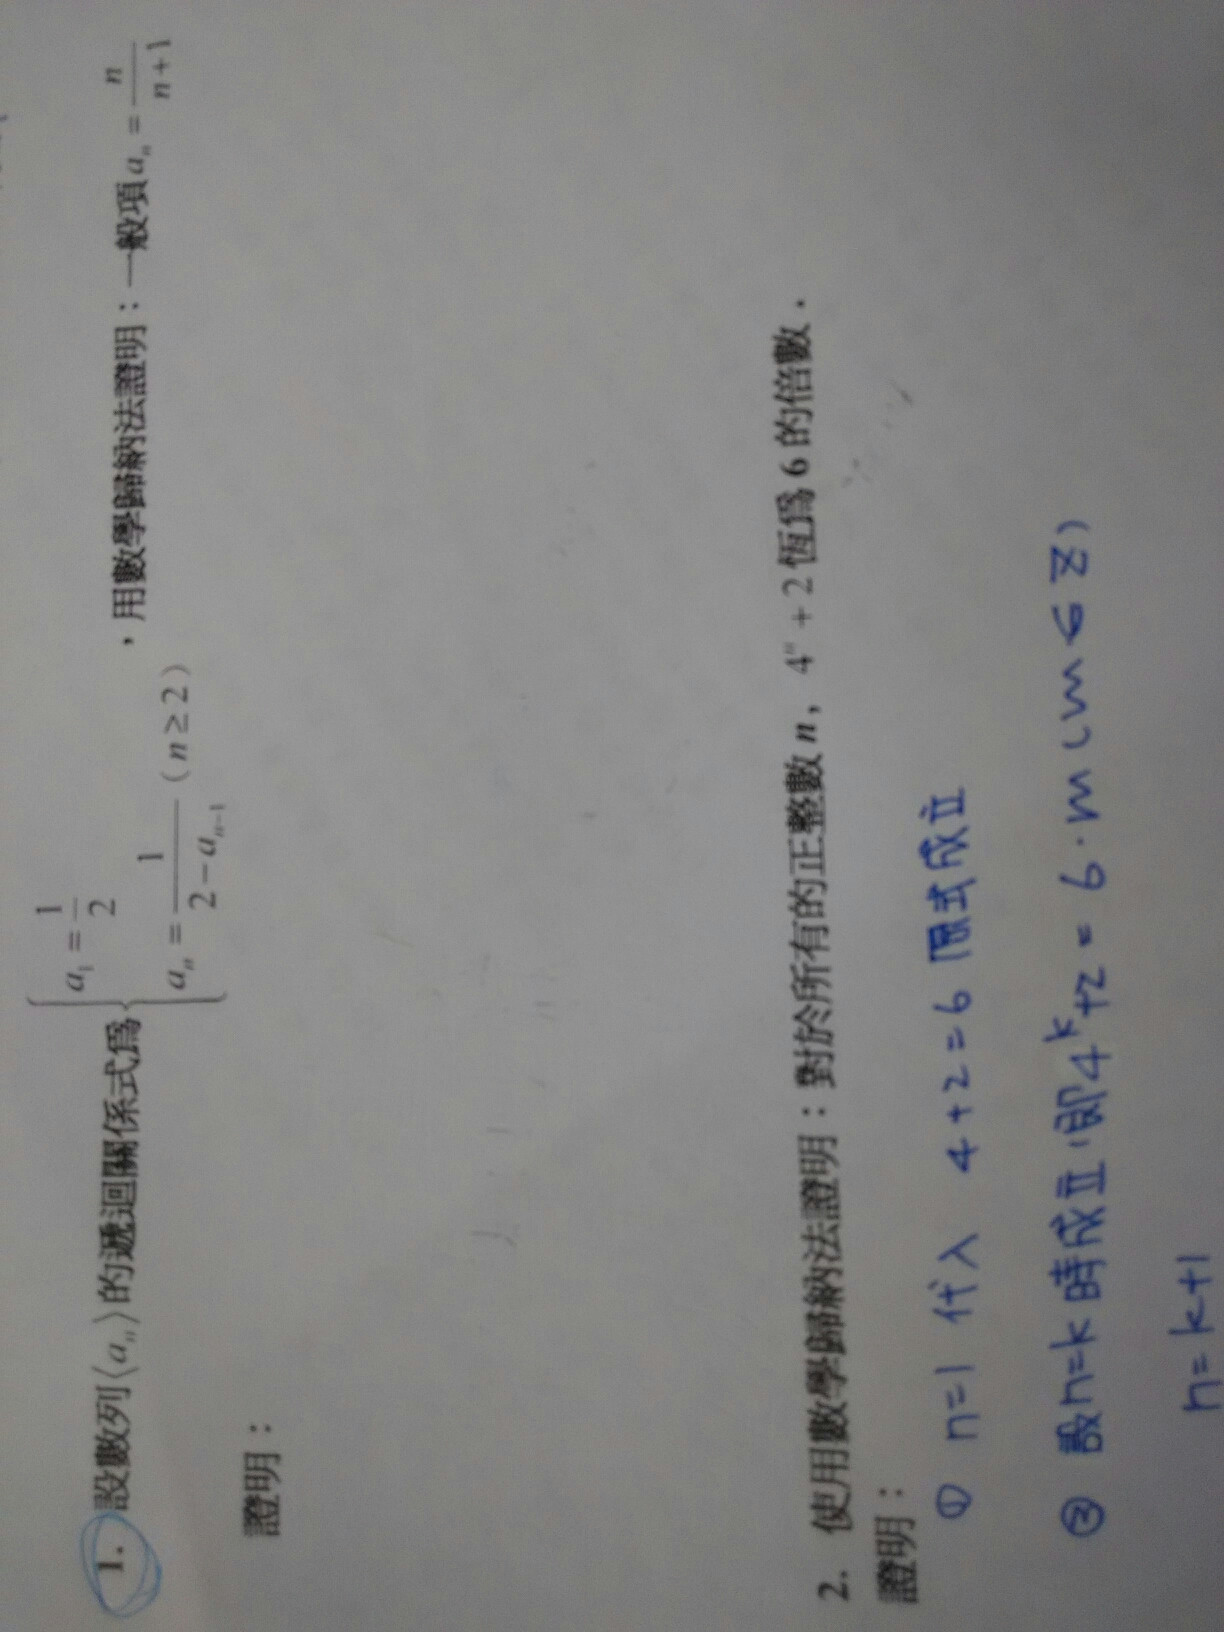 1. 設數列⟨aₙ⟩的遞迴關係式為 { a₁ = 1/2
aₙ = 1/(2 − aₙ₋₁) (n ≥ 2) ，用數學歸納法證明：一般項 aₙ = n/(n+1)
證明：
2. 使用數學歸納法證明：對於所有的正整數 n， 4ⁿ + 2 恆為 6 的倍數．
證明：
① n=1 代入 4+2=6 原式成立
② 設 n=k 時成立，即 4ᵏ+2 = 6·m (m∈Z)
n=k+1